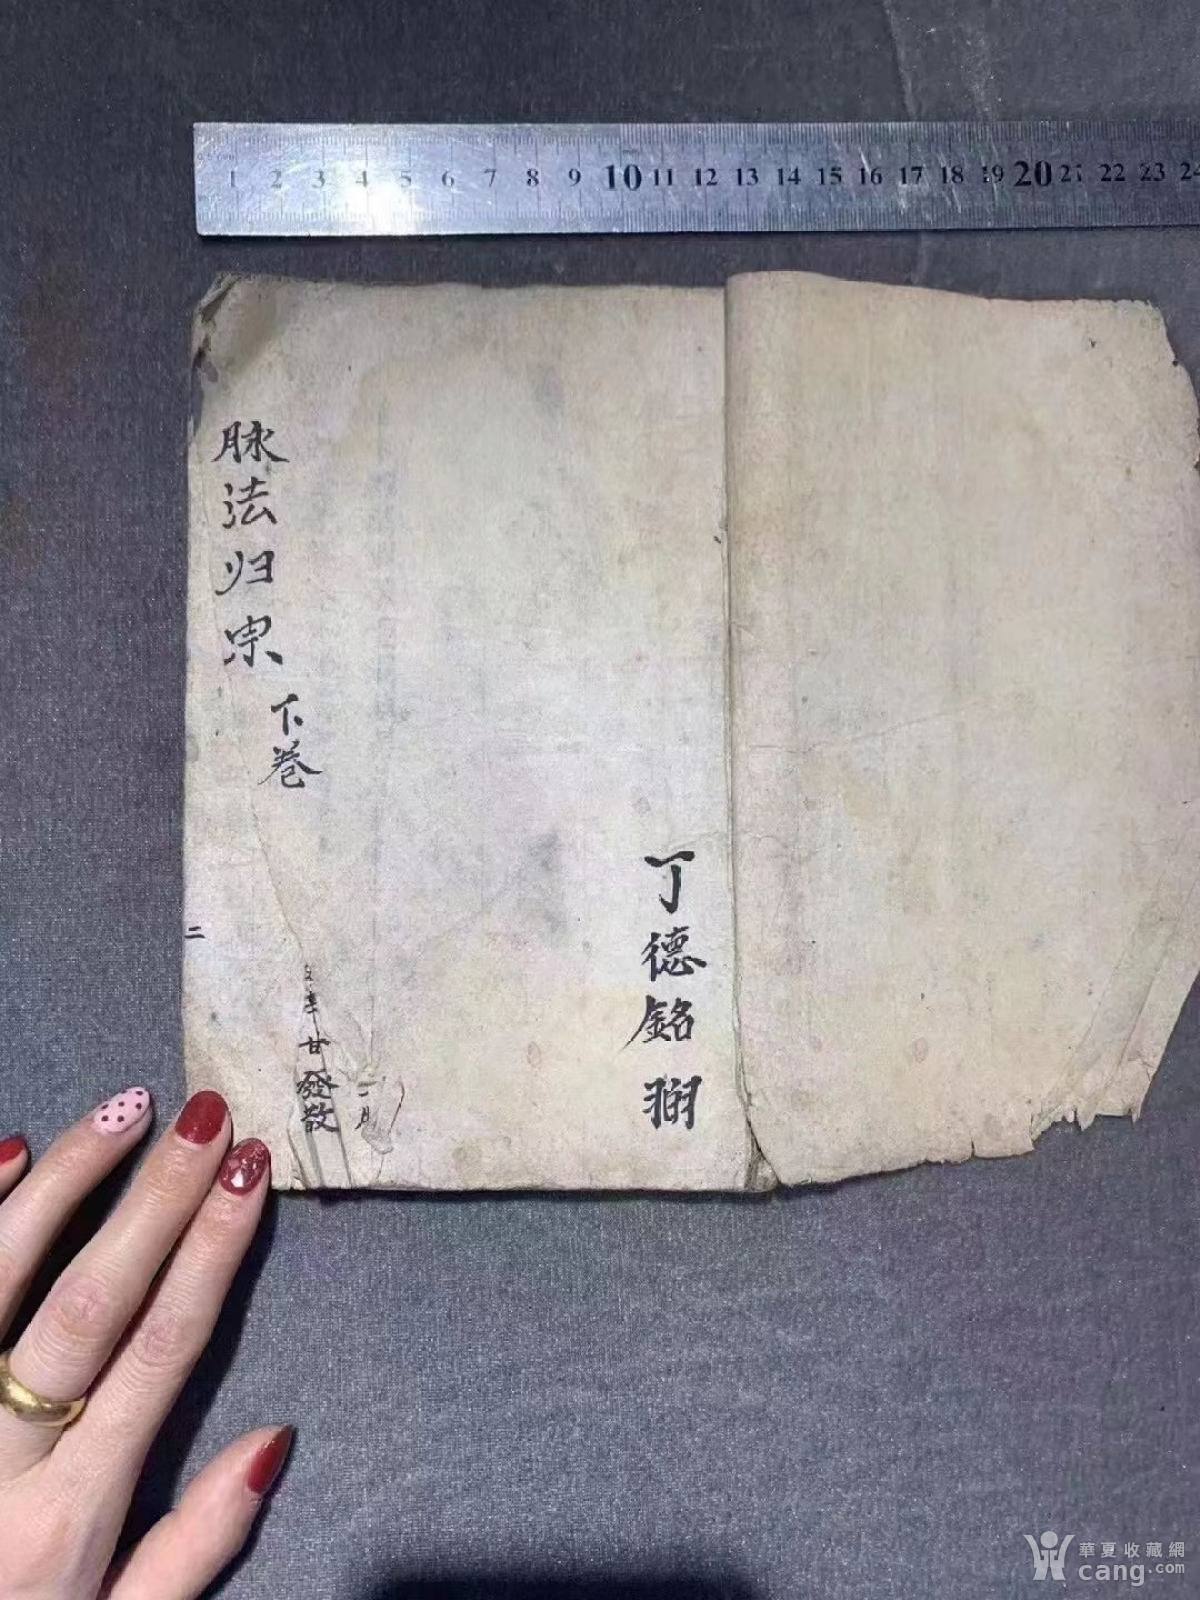 1 2 3 4 5 6 7 8 9 10 11 12 13 14 15 16 17 18 19 20 21 22 23 24
脉法归宗
下卷
丁德銘
二
辛甘發散
二月
華夏收藏網
cang.com